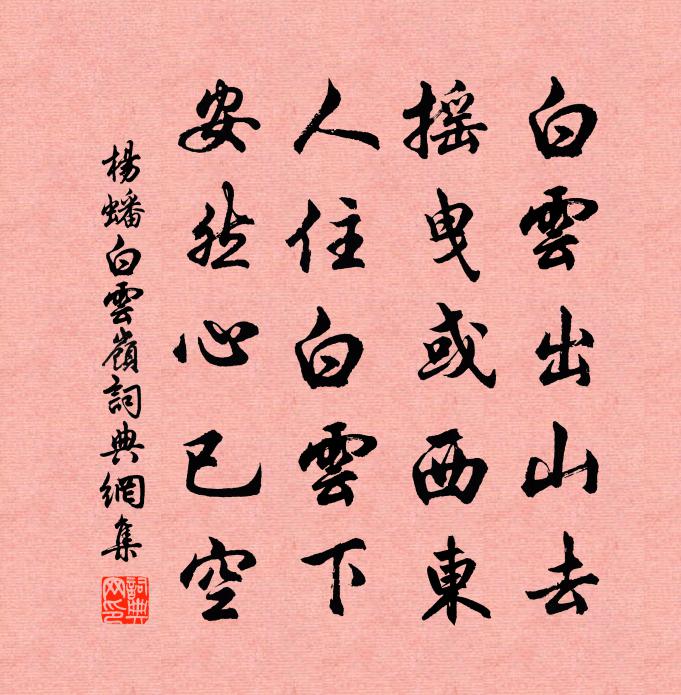 白雲出山去
摇曳或西東
人住白雲下
安然心已空
楊蟠白雲嶺詞典網集
詞典網印